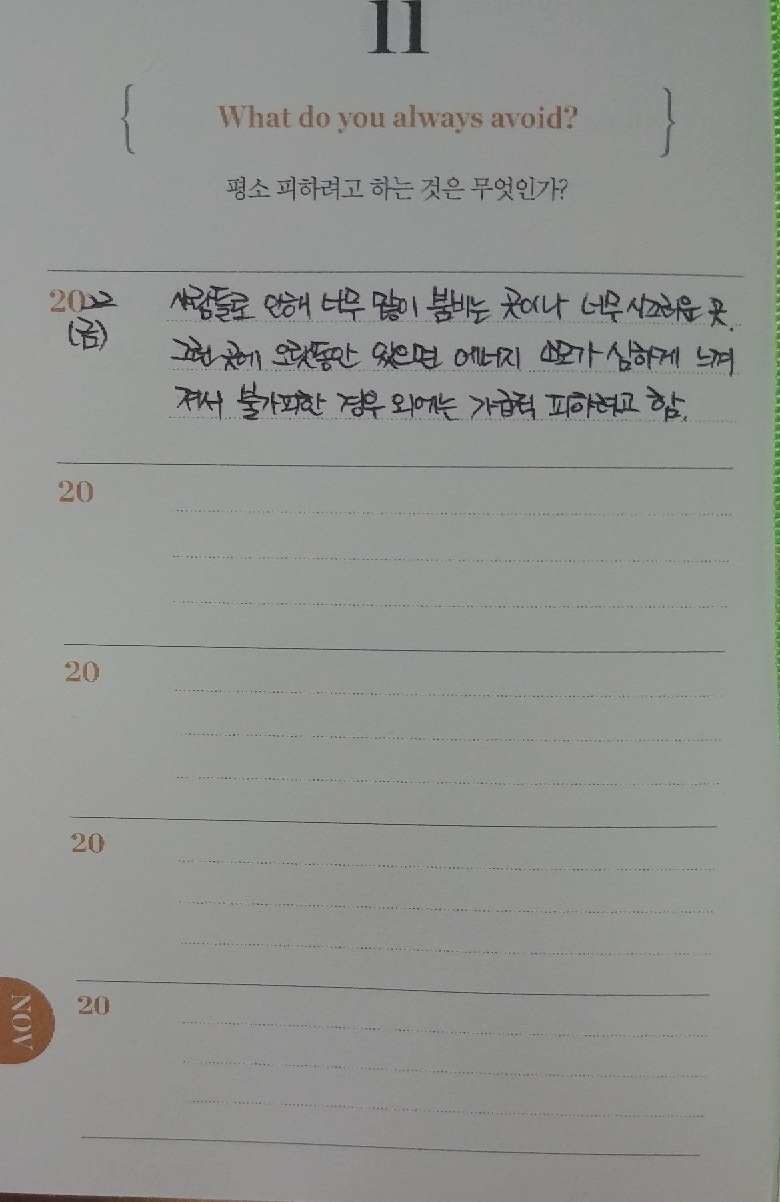 11
{ What do you always avoid? }
평소 피하려고 하는 것은 무엇인가?
2022 사람들로 인해 너무 많이 붐비는 곳이나 너무 시끄러운 곳.
(금) 그런 곳에 오랫동안 있으면 에너지 소모가 심하게 느껴
져서 불가피한 경우 외에는 가급적 피하려고 함.
20
20
20
20
NOV